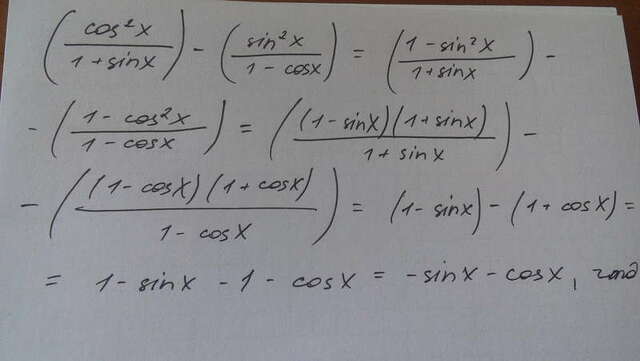 (cos²x / 1+sinx) - (sin²x / 1-cosx) = (1-sin²x / 1+sinx) -
- (1-cos²x / 1-cosx) = ((1-sinx)(1+sinx) / 1+sinx) -
- ((1-cosx)(1+cosx) / 1-cosx) = (1-sinx) - (1+cosx) =
= 1-sinx -1-cosx = -sinx-cosx,